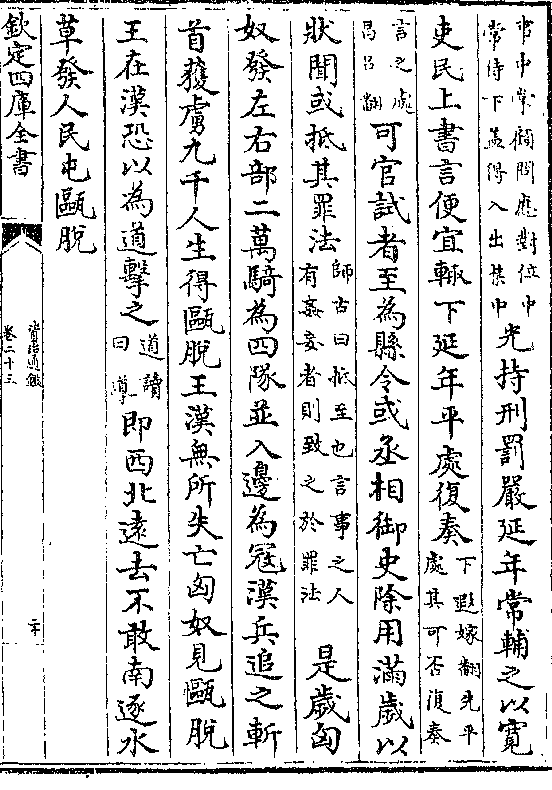 中中常顧問應對位中常侍下孟得入出禁中光持刑罰嚴延年常輔之以寬
吏民上書言便宜輒下延年平處復奏下遐嫁翻先平處其可否復奏
言之處昌呂翻可官試者至為縣令或丞相御史除用滿歲以
狀聞或抵其罪法師古曰抵至也言事之人有姦妄者則致之於罪法是歲匈
奴發左右部二萬騎為四隊並入邊為寇漢兵追之斬
首獲虜九千人生得甌脫王漢無所失亡匈奴見甌脫
王在漢恐以為道擊之道讀曰導即西北遠去不敢南逐水
草發人民屯甌脫
欽定四庫全書
資治通鑑
卷二十三
二十